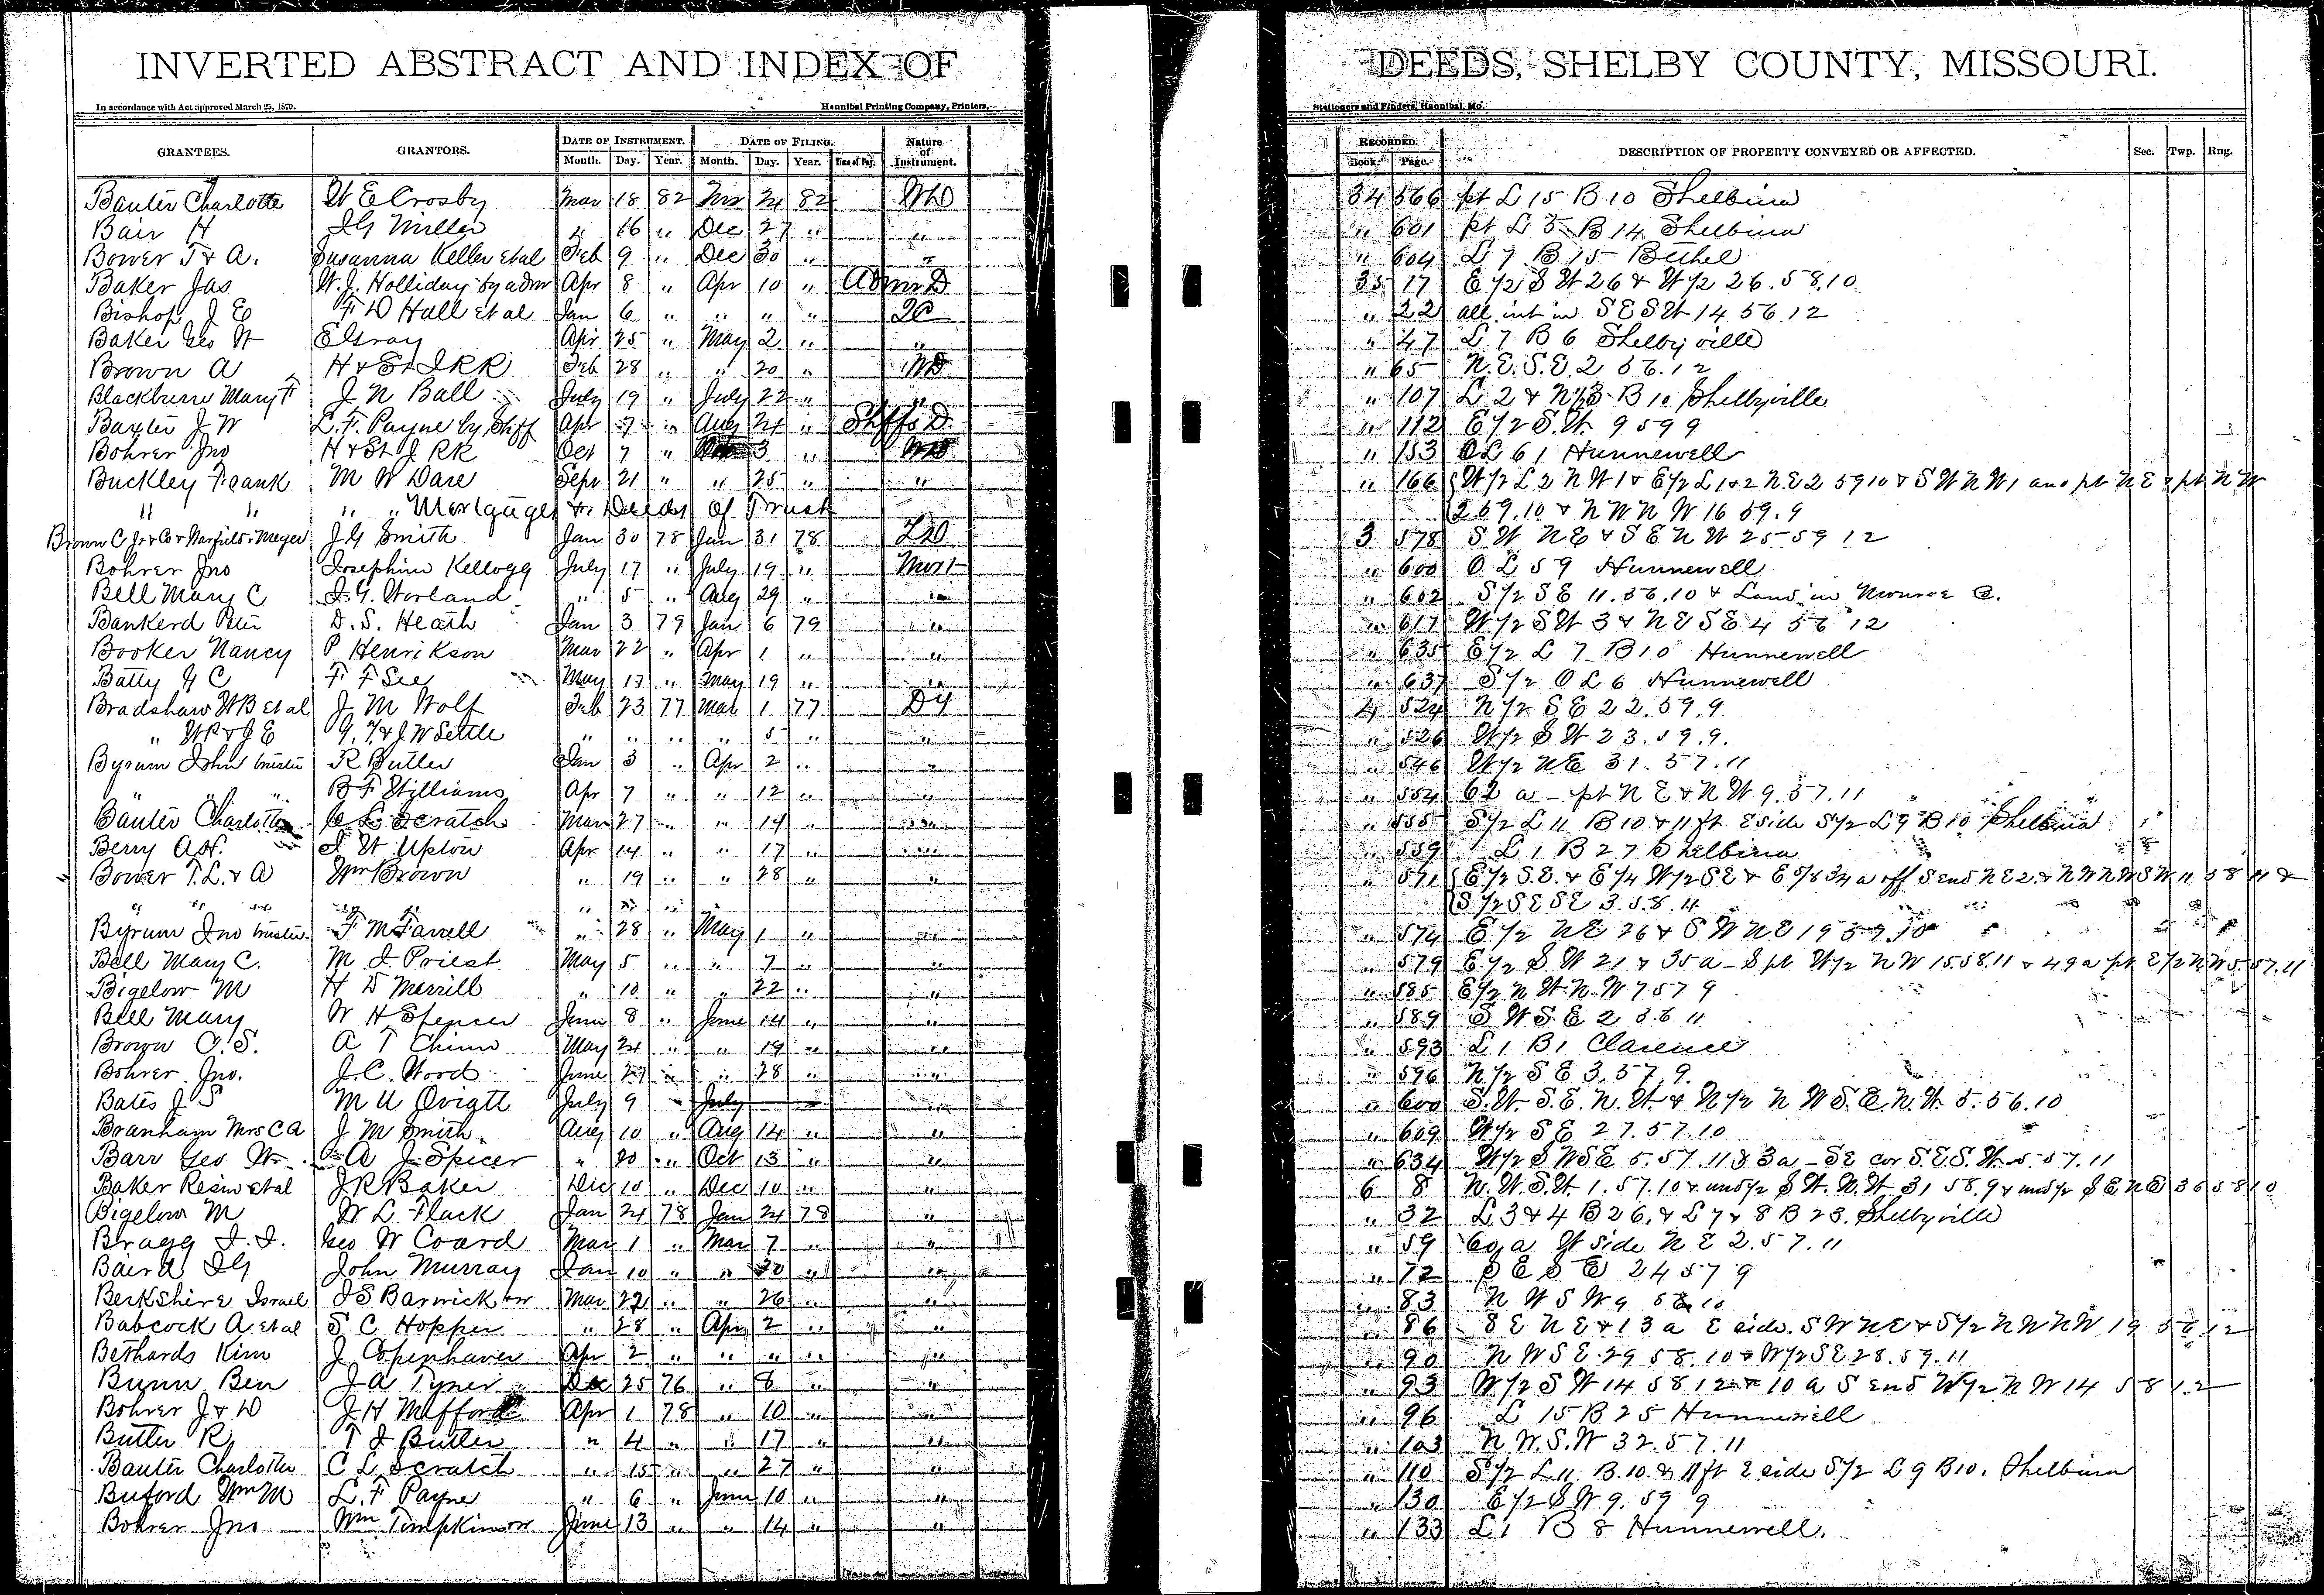 INVERTED ABSTRACT AND INDEX OF DEEDS, SHELBY COUNTY, MISSOURI.
In accordance with Act approved March 25, 1870. Hannibal Printing Company, Printers, Stationers and Binders, Hannibal, Mo.
GRANTEES. GRANTORS. DATE OF INSTRUMENT. DATE OF FILING. Nature of Instrument. RECORDED. DESCRIPTION OF PROPERTY CONVEYED OR AFFECTED. Sec. Twp. Rng.
Month. Day. Year. Month. Day. Year. Time of Day. Book. Page.
Bauter Charlotte W E Crosby Mar 18 82 24 82 WD 34 566 pt L 15 B 10 Shelbina
Bair H I G Miller " 16 " Dec 27 " " " 601 pt L 5 B 14 Shelbina
Bower T & A. Susanna Keller et al Feb 9 " Dec 30 " " " 604 L 7 B 15 Bethel
Baker Jas W. J. Holliday by admr Apr 8 " Apr 10 " Admr D 35 17 E 1/2 S W 26 & W 1/2 26. 58. 10
Bishop J E F D Hall et al Jan 6 " " " " QC " 22 all int in S E S W 14 56 12
Baker Geo W E Gray Apr 25 " May 2 " " " 47 L 7 B 6 Shelbyville
Brown A H & St J R R Feb 28 " " 20 " WD " 65 N. E. S. E. 2 56. 12
Blackburn Mary F J N Ball July 19 " July 22 " " " 107 L 2 & N 1/2 3 B 10 Shelbyville
Baxter J W L. F. Payne by Shff Apr 7 " Aug 24 " Shffs D " 112 E 1/2 S. W. 9 59 9
Bohrer Jno H & St J RR Oct 7 " 3 " WD " 153 O L 61 Hunnewell
Buckley Frank M W Dare Sepr 21 " " 25 " " " 166 W 1/2 L 2 N W 1 & E 1/2 L 1 & 2 N. E 2 59 10 & S W N W 1 and pt N E & pt N W
" " " " Mortgages & Deeds of Trust 2 59. 10 & N W N W 16 59. 9
Brown C Jr & Co & Warfield & Meyer J G Smith Jan 30 78 Jan 31 78 3 578 S W N E & S E N W 25 59 12
Bohrer Jno Josephine Kellogg July 17 " July 19 " Mort " 600 O L 59 Hunnewell
Bell Mary C J. G. Worland " 5 " Aug 29 " " " 602 S 1/2 S E 11. 56. 10 & Land in Monroe Co.
Bankerd Peter D. S. Heath Jan 3 79 Jan 6 79 " " 617 W 1/2 S W 3 & N E S E 4 56 12
Booker Nancy P Henrikson Mar 22 " Apr 1 " " " 635 E 1/2 L 7 B 10 Hunnewell
Batty J C F F See May 17 " May 19 " " " 637 S 1/2 O L 6 Hunnewell
Bradshaw W B et al J M Wolf Feb 23 77 Mar 1 77 4 524 N 1/2 S E 22. 59. 9
" W B & J E G. T. & J. W Settle " " " " 5 " " " 526 W 1/2 S W 23. 59. 9.
Byrum John trustee R Butler Jan 3 " Apr 2 " " " 546 W 1/2 N E 31. 57. 11
" " " B F Williams Apr 7 " " 12 " " " 554 62 a - pt N E & N W 9. 57. 11
Bauter Charlotte C L Scratch Mar 27 " " 14 " " " 555 S 1/2 L 11 B 10 & 11 ft E side S 1/2 L 9 B 10 Shelbina
Berry A H. J W Upton Apr 14 " " 17 " " " 559 L 1 B 27 Shelbina
Bower T. L. & A Wm Brown " 19 " " 28 " " " 571 E 1/2 S. E. & E 1/4 W 1/2 S E & E 5/8 34 a off S end N E 2. & N W N W S W 11 58 11 &
" " " " " " " S 1/2 S E S E 3. 58. 11
Byrum Jno trustee F M Farell " 28 " May 1 " " " 574 E 1/2 N E 26 & S W N E 19 57. 10
Bell Mary C. M J Priest May 5 " " 7 " " " 579 E 1/2 S W 21 & 35 a - S pt W 1/2 N W 15. 58. 11 & 49 a pt E 1/2 N W 5. 57. 11
Bigelow M H D Merrill " 10 " " 22 " " " 585 E 1/2 N W N. W 7 57 9
Bell Mary W H Spencer June 8 " June 14 " " " 589 S. W S. E 2 56 11
Brown C. S. A T Chinn May 24 " " 19 " " " 593 L 1 B 1 Clarence
Bohrer Jno. J. C. Wood June 27 " " 28 " " " 596 N 1/2 S E 3. 57. 9.
Bates J S M U Oviatt July 9 " July " " 600 S. W. S. E. N. W. & N 1/2 N W S. E. N. W. 5. 56. 10
Branham Mrs C A J M Smith Aug 10 " Aug 14 " " " 609 W 1/2 S E 27. 57. 10
Barr Geo W. A J Spicer " 20 " Oct 13 " " " 634 W 1/2 S W S E 5. 57. 11 & 3 a - S E cor S. E. S. W. 5. 57. 11
Baker Resin et al J R Baker Dec 10 " Dec 10 " " 6 8 N. W. S. W. 1. 57. 10 & und 1/2 S W. N. W 31 58. 9 & und 1/2 S E N E 36 58 10
Bigelow M W L Flack Jan 24 78 Jan 24 78 " " 32 L 3 & 4 B 26. & L 7 & 8 B 23. Shelbyville
Bragg J. J. Geo W Coard Mar 1 " Mar 7 " " " 59 60 a W side N E 2. 57. 11
Baird I G John Murray Jan 10 " " 20 " " " 72 S E S E 24 57 9
Berkshire Israel J S Barwick Mar 22 " " 26 " " " 83 N W S W 9 58 10
Babcock A. et al S C Hopper " 28 " Apr 2 " " " 86 S E N E & 13 a E side. S W N E & S 1/2 N W N W 19 56 12
Bethards Kim J Copenhaver Apr 2 " " " " " " 90 N W S E 29 58. 10 & W 1/2 S E 28. 59. 11
Bunn Ben J A Tyner Dec 25 76 " 8 " " " 93 W 1/2 S W 14 58 12 & 10 a S end W 1/2 N W 14 58 12
Bohrer J & D J H Mefford Apr 1 78 " 10 " " " 96 L 15 B 25 Hunnewell
Butler R T J Butler " 4 " " 17 " " " 103 N. W. S. W 32. 57. 11
Bauter Charlotte C L Scratch " 15 " " 27 " " " 110 S 1/2 L 11 B. 10. & 11 ft E side S 1/2 L 9 B 10. Shelbina
Buford Wm M L. F Payne " 6 " June 10 " " " 130 E 1/2 S W 9. 59 9
Bohrer Jno Wm Tompkinson June 13 " " 14 " " " 133 L 1 B 8 Hunnewell.